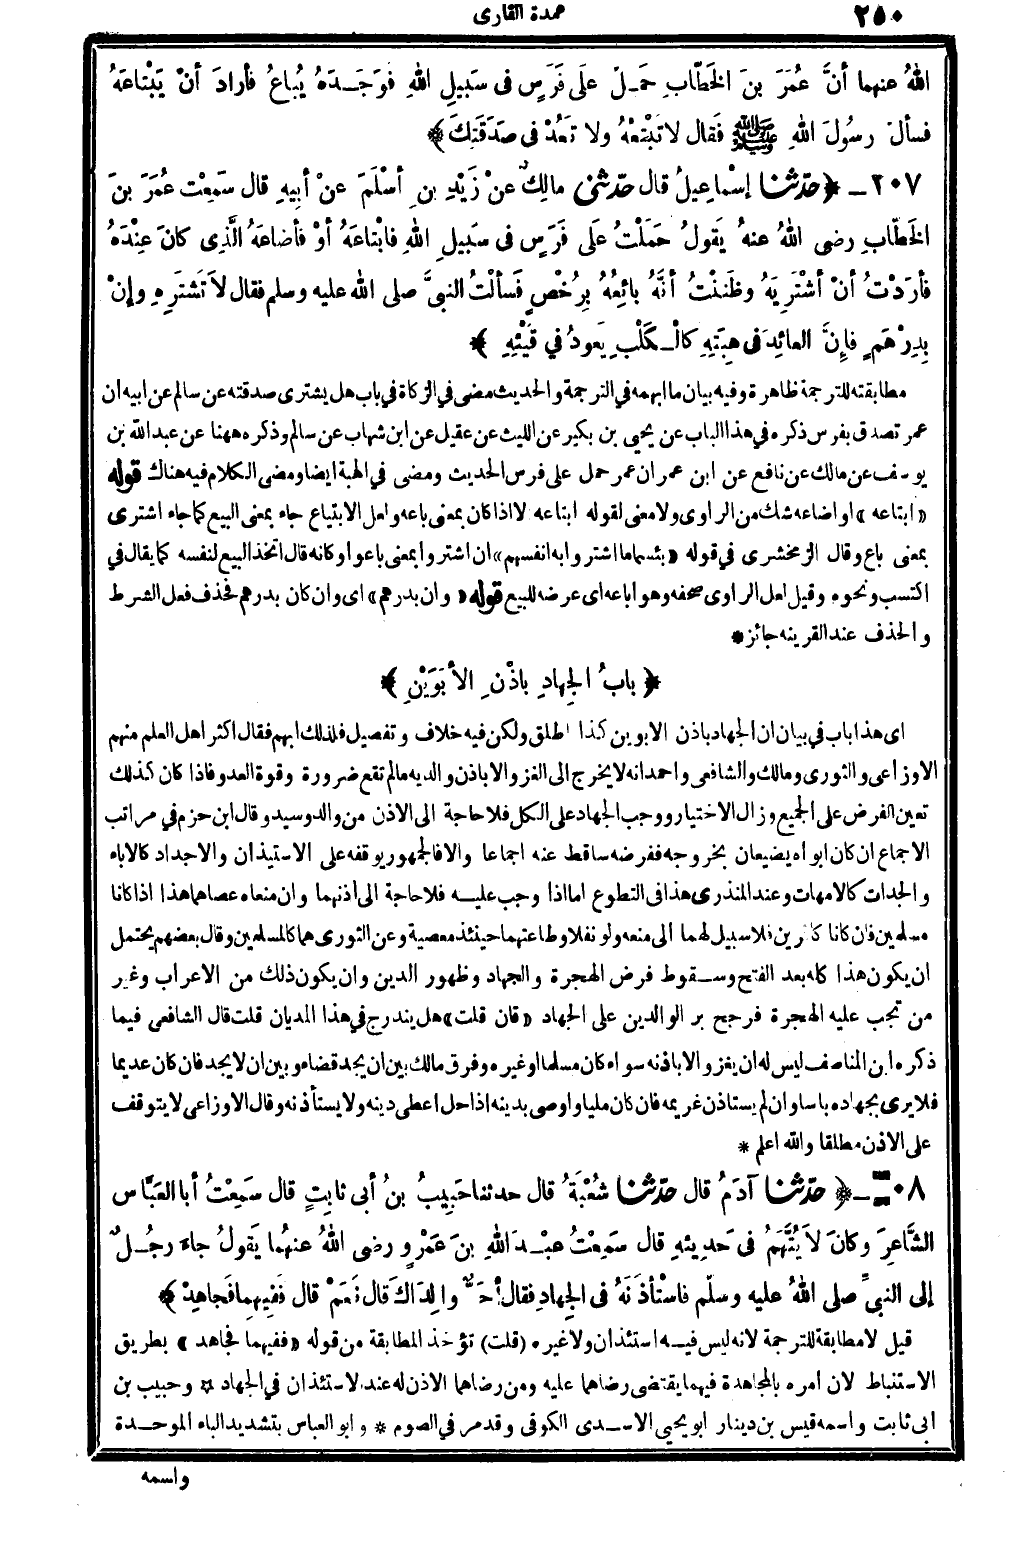 ٢٥٠
عمدة القارى
اللهُ عنهما أنَّ عُمَرَ بنَ الخَطّابِ حَمَلَ علَى فَرَسٍ فى سَبيلِ اللهِ فوَجَدَهُ يُباعُ فأرادَ أنْ يَبْتاعَهُ
فسألَ رسُولَ اللهِ ﷺ فَقال لا تَبْتَعْهُ ولا تَعُدْ فى صَدَقَتِكَ ﴾
٢٠٧ ـ ﴿ حدّثنا إسْماعِيلُ قال حدّثنى مالِكٌ عنْ زَيْدِ بنِ أسْلَمَ عنْ أبيهِ قال سَمِعْت عُمَرَ بنَ
الخَطّابِ رضى اللهُ عنهُ يَقولُ حَمَلْتُ علَى فَرَسٍ فى سَبيلِ اللهِ فابْتاعَهُ أوْ فأضاعَهُ الَّذِى كانَ عِنْدَهُ
فأرَدْتُ أنْ أشْتَرِيَهُ وظَنَنْتُ أنَّهُ بائِعُهُ بِرُخْصٍ فَسألْتُ النبىَّ صلى الله عليه وسلم فقال لاَ تَشْتَرِهِ وإنْ
بِدِرْهَمٍ فإنَّ العائِدَ فى هِبَتِهِ كالْكَلْبِ يَعودُ في قَيْئِهِ ﴾
مطابقته للترجمة ظاهرة وفيه بيان ما ابهمه في الترجمة والحديث مضى في الزكاة في باب هل يشترى صدقته عن سالم عن ابيه ان
عمر تصدق بفرس ذكره في هذا الباب عن يحيى بن بكير عن الليث عن عقيل عن ابن شهاب عن سالم وذكره ههنا عن عبد الله بن
يوسف عن مالك عن نافع عن ابن عمر ان عمر حمل على فرس الحديث ومضى في الهبة ايضا ومضى الكلام فيه هناك قوله
«ابتاعه» او اضاعه شك من الراوى ولا معنى لقوله ابتاعه لا اذا كان بمعنى باعه ولعل الابتياع جاء بمعنى البيع كما جاء اشترى
بمعنى باع وقال الزمخشرى في قوله «بئسما اشتروا به انفسهم» ان اشتروا بمعنى باعوا وكانه قال اتخذ البيع لنفسه كما يقال في
اكتسب ونحوه وقيل لعل الراوى صحفه وهو اباعه اى عرضه للبيع قوله «وان بدرهم» اى وان كان بدرهم فحذف فعل الشرط
والحذف عند القرينه جائز *
﴿ بابُ الجِهادِ بإذْنِ الأَبَوَيْنِ ﴾
اى هذا باب في بيان ان الجهاد باذن الابوين كذا اطلق ولكن فيه خلاف وتفصيل فلذلك ابهم فقال اكثر اهل العلم منهم
الاوزاعى والثورى ومالك والشافعى واحمد انه لا يخرج الى الغزو الا باذن والديه مالم تقع ضرورة وقوة العدو فاذا كان كذلك
تعين الفرض على الجميع وزال الاختيار ووجب الجهاد على الكل فلا حاجة الى الاذن من والد وسيد وقال ابن حزم في مراتب
الاجماع ان كان ابواه يضيعان بخروجه ففرضه ساقط عنه اجماعا والا فالجمهور يوقفه على الاستيذان والاجداد كالاباء
والجدات كالامهات وعند المنذرى هذا في التطوع اما اذا وجب عليه فلا حاجة الى أذنهما وان منعاه عصاهما هذا اذا كانا
مسلمين فان كانا كافرين فلا سبيل لهما الى منعه ولو نفلا وطاعتهما حينئذ معصية وعن الثورى هما كالمسلمين وقال بعضهم يحتمل
ان يكون هذا كله بعد الفتح وسقوط فرض الهجرة والجهاد وظهور الدين وان يكون ذلك من الاعراب وغير
من تجب عليه الهجرة فرجح بر الوالدين على الجهاد «فان قلت» هل يندرج في هذا المديان قلت قال الشافعى فيما
ذكره ابن المناصف ليس له ان يغزو الا باذنه سواء كان مسلما او غيره وفرق مالك بين ان يجد قضاء وبين ان لا يجد فان كان عديما
فلا يرى بجهاده باسا وان لم يستاذن غريمه فان كان مليا واوصى بدينه اذا حل اعطى دينه ولا يستأذنه وقال الاوزاعى لا يتوقف
على الاذن مطلقا والله اعلم *
٢٠٨ ـ ﴿ حدّثنا آدَمُ قال حدّثنا شُعْبَةُ قال حدثنا حَبِيبُ بنُ أبى ثابِتٍ قال سَمِعْتُ أبا العَبَّاسِ
الشَّاعِرَ وكانَ لاَ يُتَّهَمُ فى حَدِيثِهِ قال سَمِعْتُ عبْدَ اللهِ بنَ عَمْرٍو رضى اللهُ عنهُما يَقولُ جاءَ رجُلٌ
إلى النبىِّ صلى اللهُ عليه وسلّم فاسْتأذَنَهُ فى الجِهادِ فقال أحَىٌّ والِدَاكَ قال نَعَمْ قال فَفِيهِما فَجاهِدْ ﴾
قيل لا مطابقة للترجمة لانه ليس فيه استئذان ولا غيره (قلت) تؤخذ المطابقة من قوله «ففيهما فجاهد» بطريق
الاستنباط لان امره بالمجاهدة فيهما يقتضى رضاهما عليه ومن رضاهما الاذن له عند الاستئذان في الجهاد * وحبيب بن
ابى ثابت واسمه قيس بن دينار ابو يحيى الاسدى الكوفى وقد مر في الصوم * وابو العباس بتشديد الباء الموحدة
واسمه